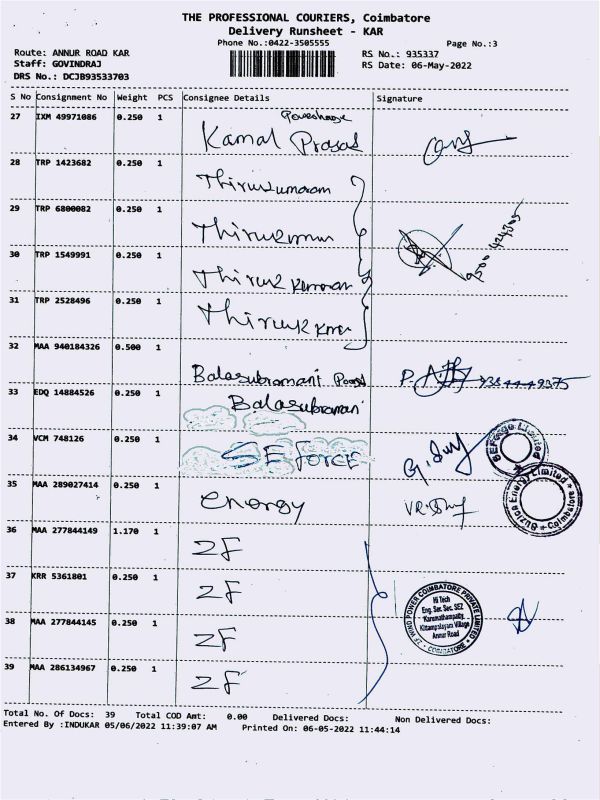 THE PROFESSIONAL COURIERS, Coimbatore
Delivery Runsheet - KAR
Phone No.:0422-3505555
Page No.:3
Route: ANNUR ROAD KAR
RS No.: 935337
Staff: GOVINDRAJ
RS Date: 06-May-2022
DRS No.: DCJB93533703
S No Consignment No Weight PCS Consignee Details Signature
27 IXM 49971086 0.250 1
Kamal Prasad
28 TRP 1423682 0.250 1
Thirukumaran
29 TRP 6800082 0.250 1
Thirukumar
30 TRP 1549991 0.250 1
Thiruk Kumaran
31 TRP 2528496 0.250 1
Thiruk Kumar
32 MAA 940184326 0.500 1
Balasubramani
33 EDQ 14884526 0.250 1
Balasubramani
34 VCM 748126 0.250 1
SE force
SEForge Limited
35 MAA 289027414 0.250 1
energy
Suzlon Energy Limited * Coimbatore *
36 MAA 277844149 1.170 1
ZF
37 KRR 5361801 0.250 1
ZF
ZF WIND POWER COIMBATORE PRIVATE LIMITED
* COIMBATORE *
Hi Tech
Eng. Sec. Sec. SEZ
Karumathampatty,
Kittampalayam Village
Annur Road
38 MAA 277844145 0.250 1
ZF
39 MAA 286134967 0.250 1
ZF
Total No. Of Docs: 39 Total COD Amt: 0.00 Delivered Docs: Non Delivered Docs:
Entered By :INDUKAR 05/06/2022 11:39:07 AM Printed On: 06-05-2022 11:44:14